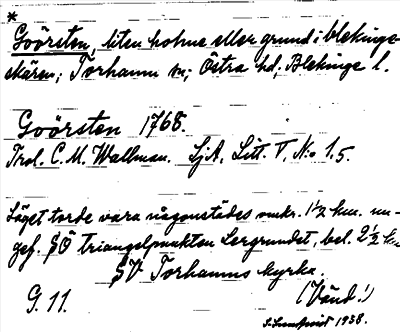 *
Goörsten, liten holme eller grund i blekinge-
skären; Torhamn sn; Östra hd; Blekinge l.
Goörsten 1768.
Trol. C. M. Wallman. SjA, Litt. T, No 1.5.
Läget torde vara någonstädes omkr. 1½ km. un-
gef. SÖ triangelpunkten Lergrundet, bel. 2½ km
SV Torhamns kyrka.
G. 11. (Vänd!)
S. Lundqvist 1938.